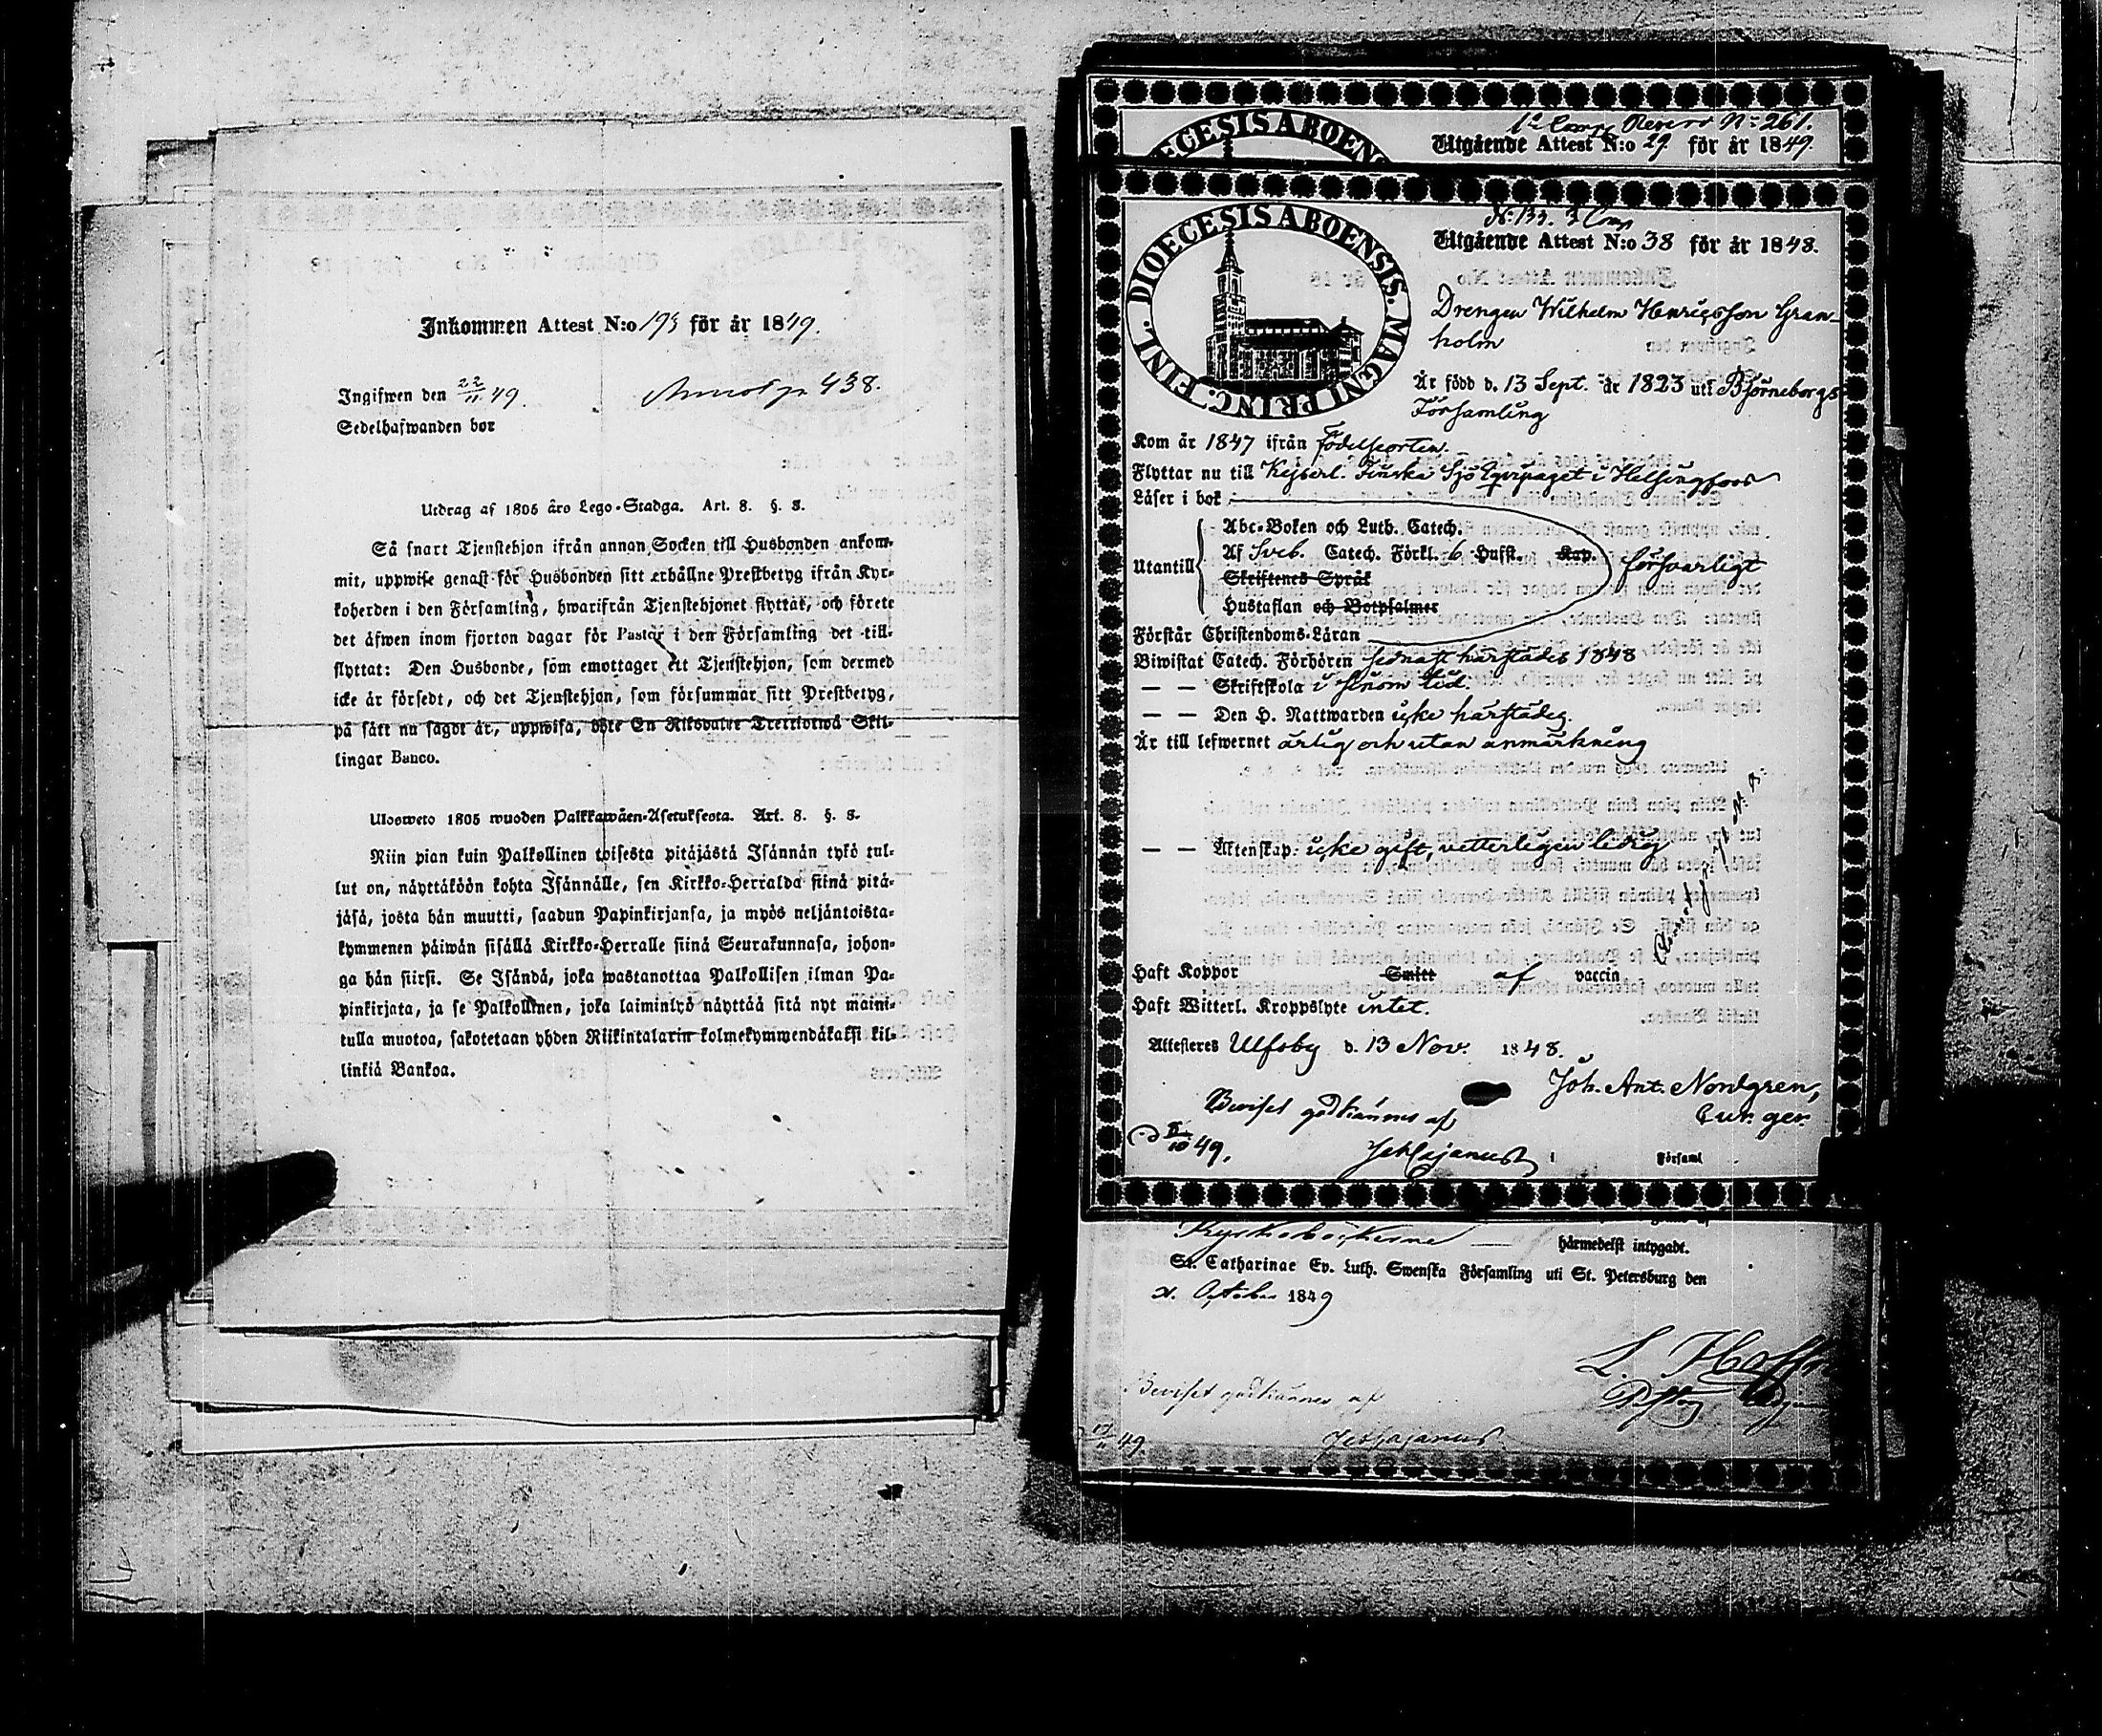 Inkommen Attest N:o 193 för år 1849.
Ingifwen den 22/11 49. 438.
Sedelhafwanden bor
Utdrag af 1805 års Lego-Stadga. Art. 8. §. 8.
Så snart Tjenstehjon ifrån annan Socken till Husbonden ankom-
mit, uppwise genast för Husbonden sitt erhållne Prestbetyg ifrån Kyr-
koherden i den Församling, hwarifrån Tjenstehjonet flyttat, och förete
det äfwen inom fjorton dagar för Pastor i den Församling det till-
flyttat: Den Husbonde, som emottager ett Tjenstehjon, som dermed
icke är försedt, och det Tjenstehjon, som försummar sitt Prestbetyg,
på sätt nu sagdt är, uppwisa, böte En Riksdaler Trettiotwå Skil-
lingar Banco.
Ulosweto 1805 wuoden Palkkawäen-Asetuksesta. Art. 8. §. 8.
Niin pian kuin Palkollinen toisesta pitäjästä Isännän tykö tul-
lut on, näyttäköön kohta Isännälle, sen Kirkko-Herralda siinä pitä-
jäsä, josta hän muutti, saadun Papinkirjansa, ja myös neljäntoista-
kymmenen päiwän sisällä Kirkko-Herralle siinä Seurakunnasa, johon-
ga hän siirsi. Se Isändä, joka wastanottaa Palkollisen ilman Pa-
pinkirjata, ja se Palkollinen, joka laiminlyö näyttää sitä nyt maini-
tulla muotoa, sakotetaan yhden Riikintalarin kolmekymmendäkaksi kil-
linkiä Bankoa.
DIOECESIS ABOENSIS
1a Comp Reserv No 261.
Utgående Attest N:o 29 för år 1849.
DIOECESIS ABOENSIS. MAGNI PRINC. FINL.
No 133. 3 Comp
Utgående Attest N:o 38 för år 1848.
Drengen Wilhelm Henricsson Gran-
holm
Är född d. 13 Sept. år 1823 uti Björneborgs
Församling
Kom år 1847 ifrån födelseorten.
Flyttar nu till Kejserl. Finska Sjö Equipaget i Helsingfors
Läser i bok
Utantill
Abc-Boken och Luth. Catech.
Af Sveb. Catech. Förkl. 6 Hufst. Kap.
Skriftenes Språk
Hustaflan och Botpsalmer
försvarligt
Förstår Christendoms-Läran
Biwistat Catech. Förhören sednast härstädes 1848
— — Skriftskola i sinom tid.
— — Den H. Nattwarden icke härstädes.
Är till lefwernet ärlig och utan anmärkning
— — Äktenskap: icke gift, vetterligen ledig
Haft Koppor Smitt af vaccin
Haft Witterl. Kroppslyte intet.
Attesteras Ulfsby d. 13 Nov. 1848.
Joh. Ant. Nordgren,
Cur. ger.
Beviset godkännes af
49.
i Församl
Kyrkoböckerne härmedelst intygadt.
St. Catharinae Ev. Luth. Swenska Församling uti St. Petersburg den
October 1849
Beviset godkännes af
49.